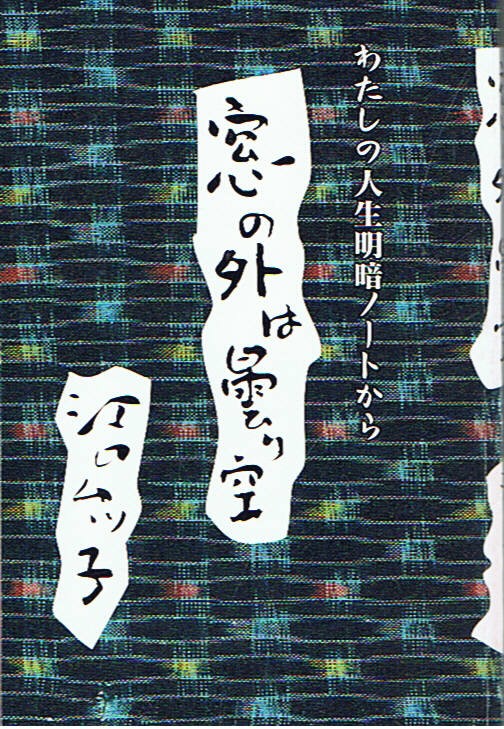 わたしの人生明暗ノートから
窓の外は曇り空
江口ムツ子